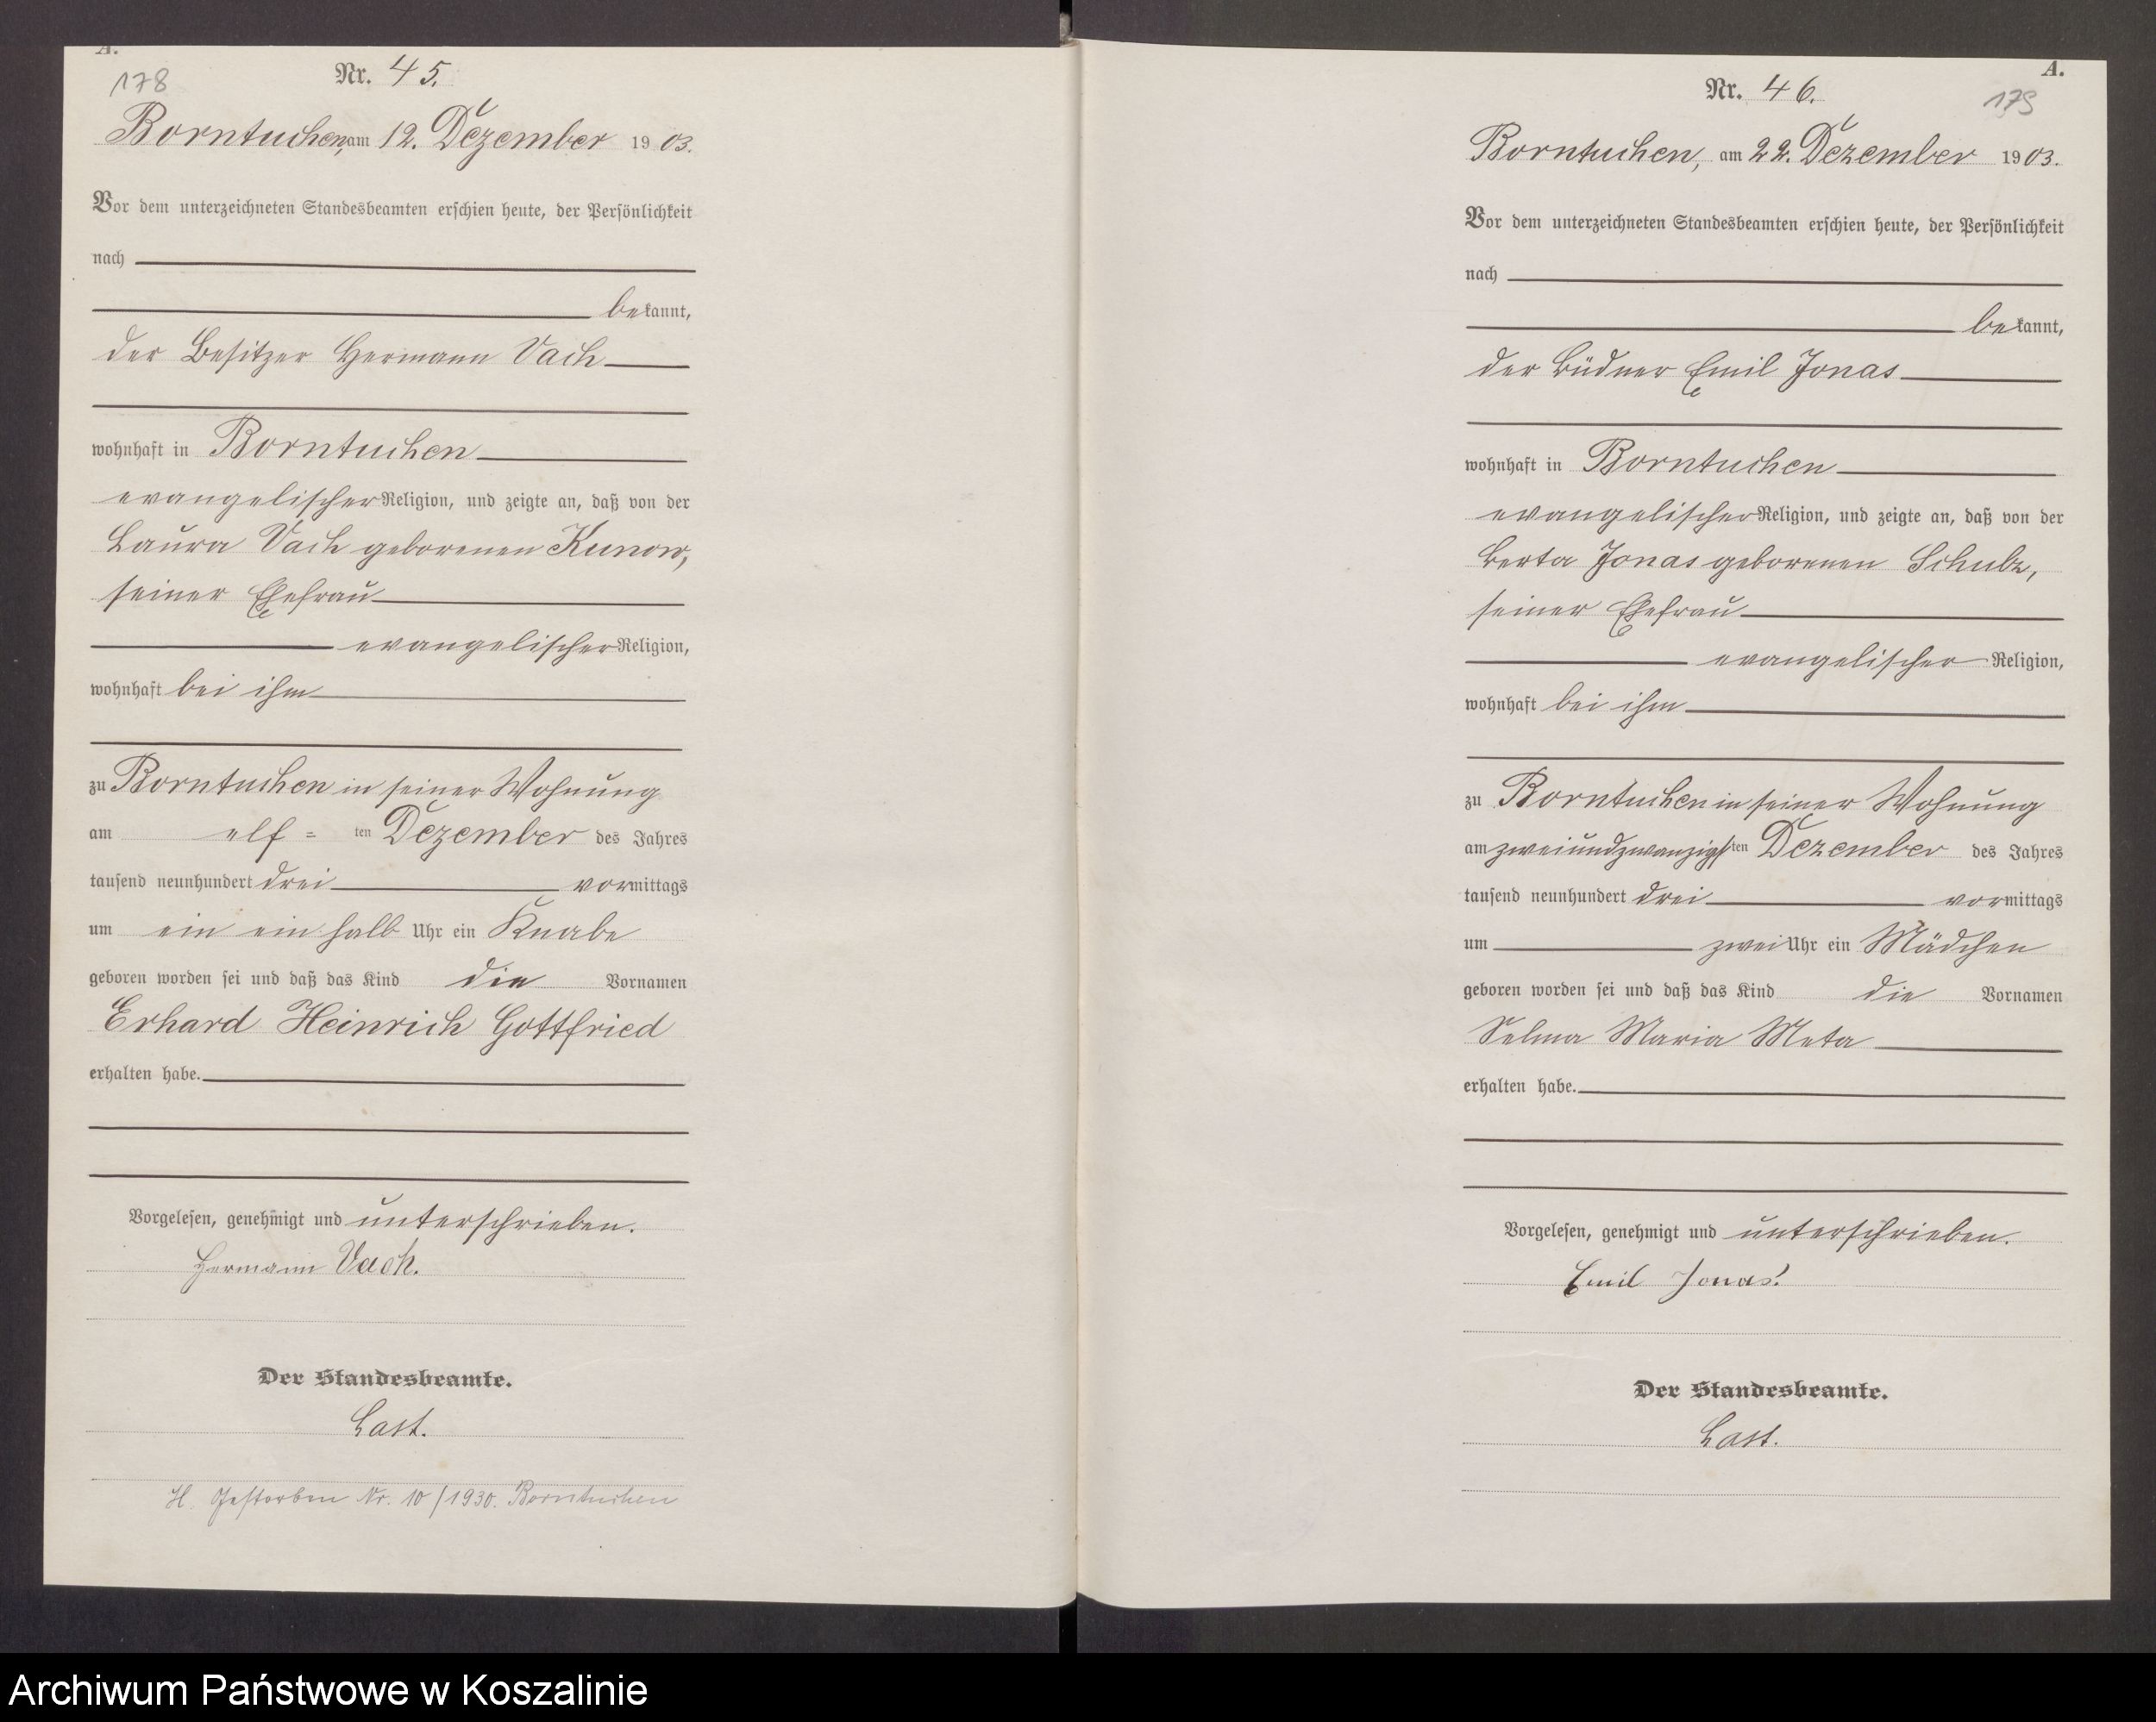 A.
178
Nr. 45.
Borntuchen, am 12. Dezember 1903.
Vor dem unterzeichneten Standesbeamten erschien heute, der Persönlichkeit
nach
bekannt,
der Besitzer Hermann Vach
wohnhaft in Borntuchen
evangelischer Religion, und zeigte an, daß von der
Laura Vach geborenen Kunow,
seiner Ehefrau
evangelischer Religion,
wohnhaft bei ihm
zu Borntuchen in seiner Wohnung
am elf=ten Dezember des Jahres
tausend neunhundert drei vormittags
um ein ein halb Uhr ein Knabe
geboren worden sei und daß das Kind die Vornamen
Erhard Heinrich Gottfried
erhalten habe.
Vorgelesen, genehmigt und unterschrieben.
Hermann Vach.
Der Standesbeamte.
Last.
H. Gestorben Nr. 10/1930. Borntuchen
A.
179
Nr. 46.
Borntuchen, am 22. Dezember 1903.
Vor dem unterzeichneten Standesbeamten erschien heute, der Persönlichkeit
nach
bekannt,
der Büdner Emil Jonas
wohnhaft in Borntuchen
evangelischer Religion, und zeigte an, daß von der
Berta Jonas geborenen Schulz,
seiner Ehefrau
evangelischer Religion,
wohnhaft bei ihm
zu Borntuchen in seiner Wohnung
am zweiundzwanzigsten Dezember des Jahres
tausend neunhundert drei vormittags
um zwei Uhr ein Mädchen
geboren worden sei und daß das Kind die Vornamen
Selma Maria Meta
erhalten habe.
Vorgelesen, genehmigt und unterschrieben.
Emil Jonas.
Der Standesbeamte.
Last.
Archiwum Państwowe w Koszalinie